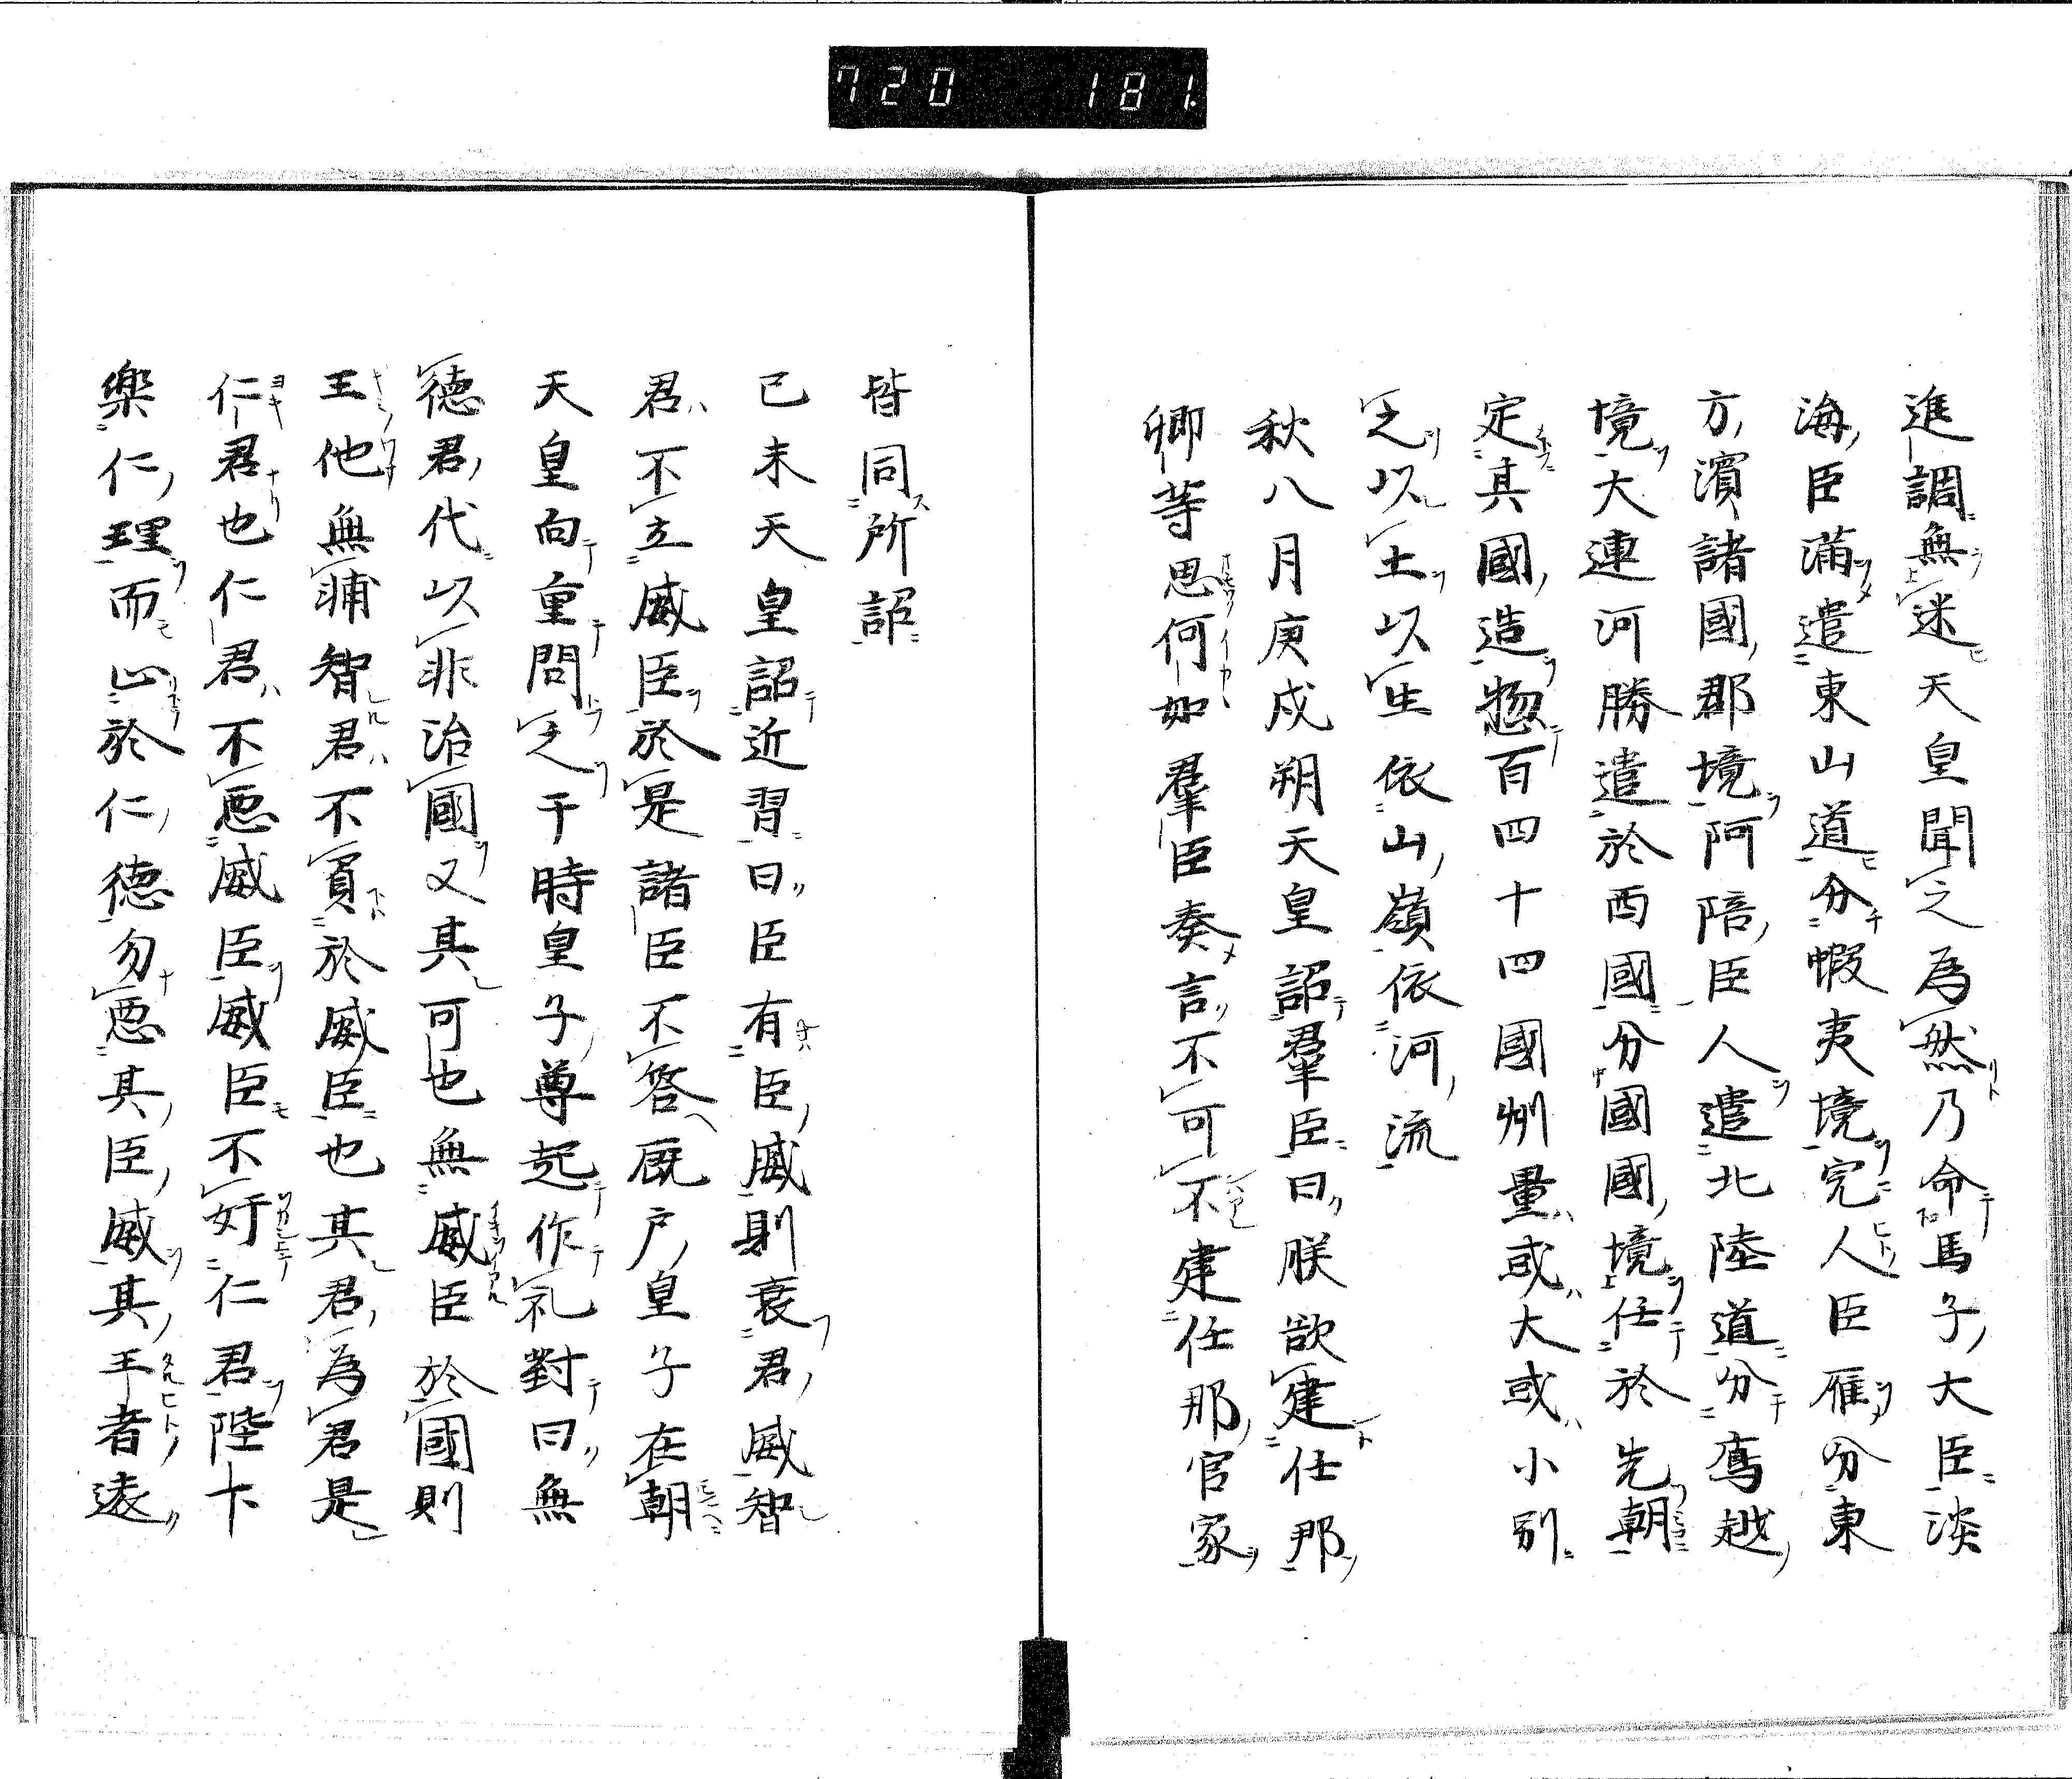 720 181.
進調無迷天皇聞之為然乃命馬子大臣淡
海臣滿遣東山道分蝦夷境完人臣雁分東
方濱諸國郡境阿陪臣人遣北陸道分鳫越
境大連河勝遣於西國分國國境任於先朝
定其國造惣百四十四國州量或大或小別
之以土以生依山嶺依河流
秋八月庚戌朔天皇詔羣臣曰朕欲建任那
卿等思何如羣臣奏言不可不建任那官家
皆同所詔
已未天皇詔近習曰臣有臣威則衰君威智
君不立威臣於是諸臣不答厩户皇子在朝
天皇向重問之于時皇子尊起作礼對曰無
德君代以非治國又其可也無威臣於國則
王他無補智君不賓於威臣也其君為君是
仁君也仁君不惡威臣威臣不奸仁君陛下
樂仁理而止於仁德勿惡其臣威其王者遠